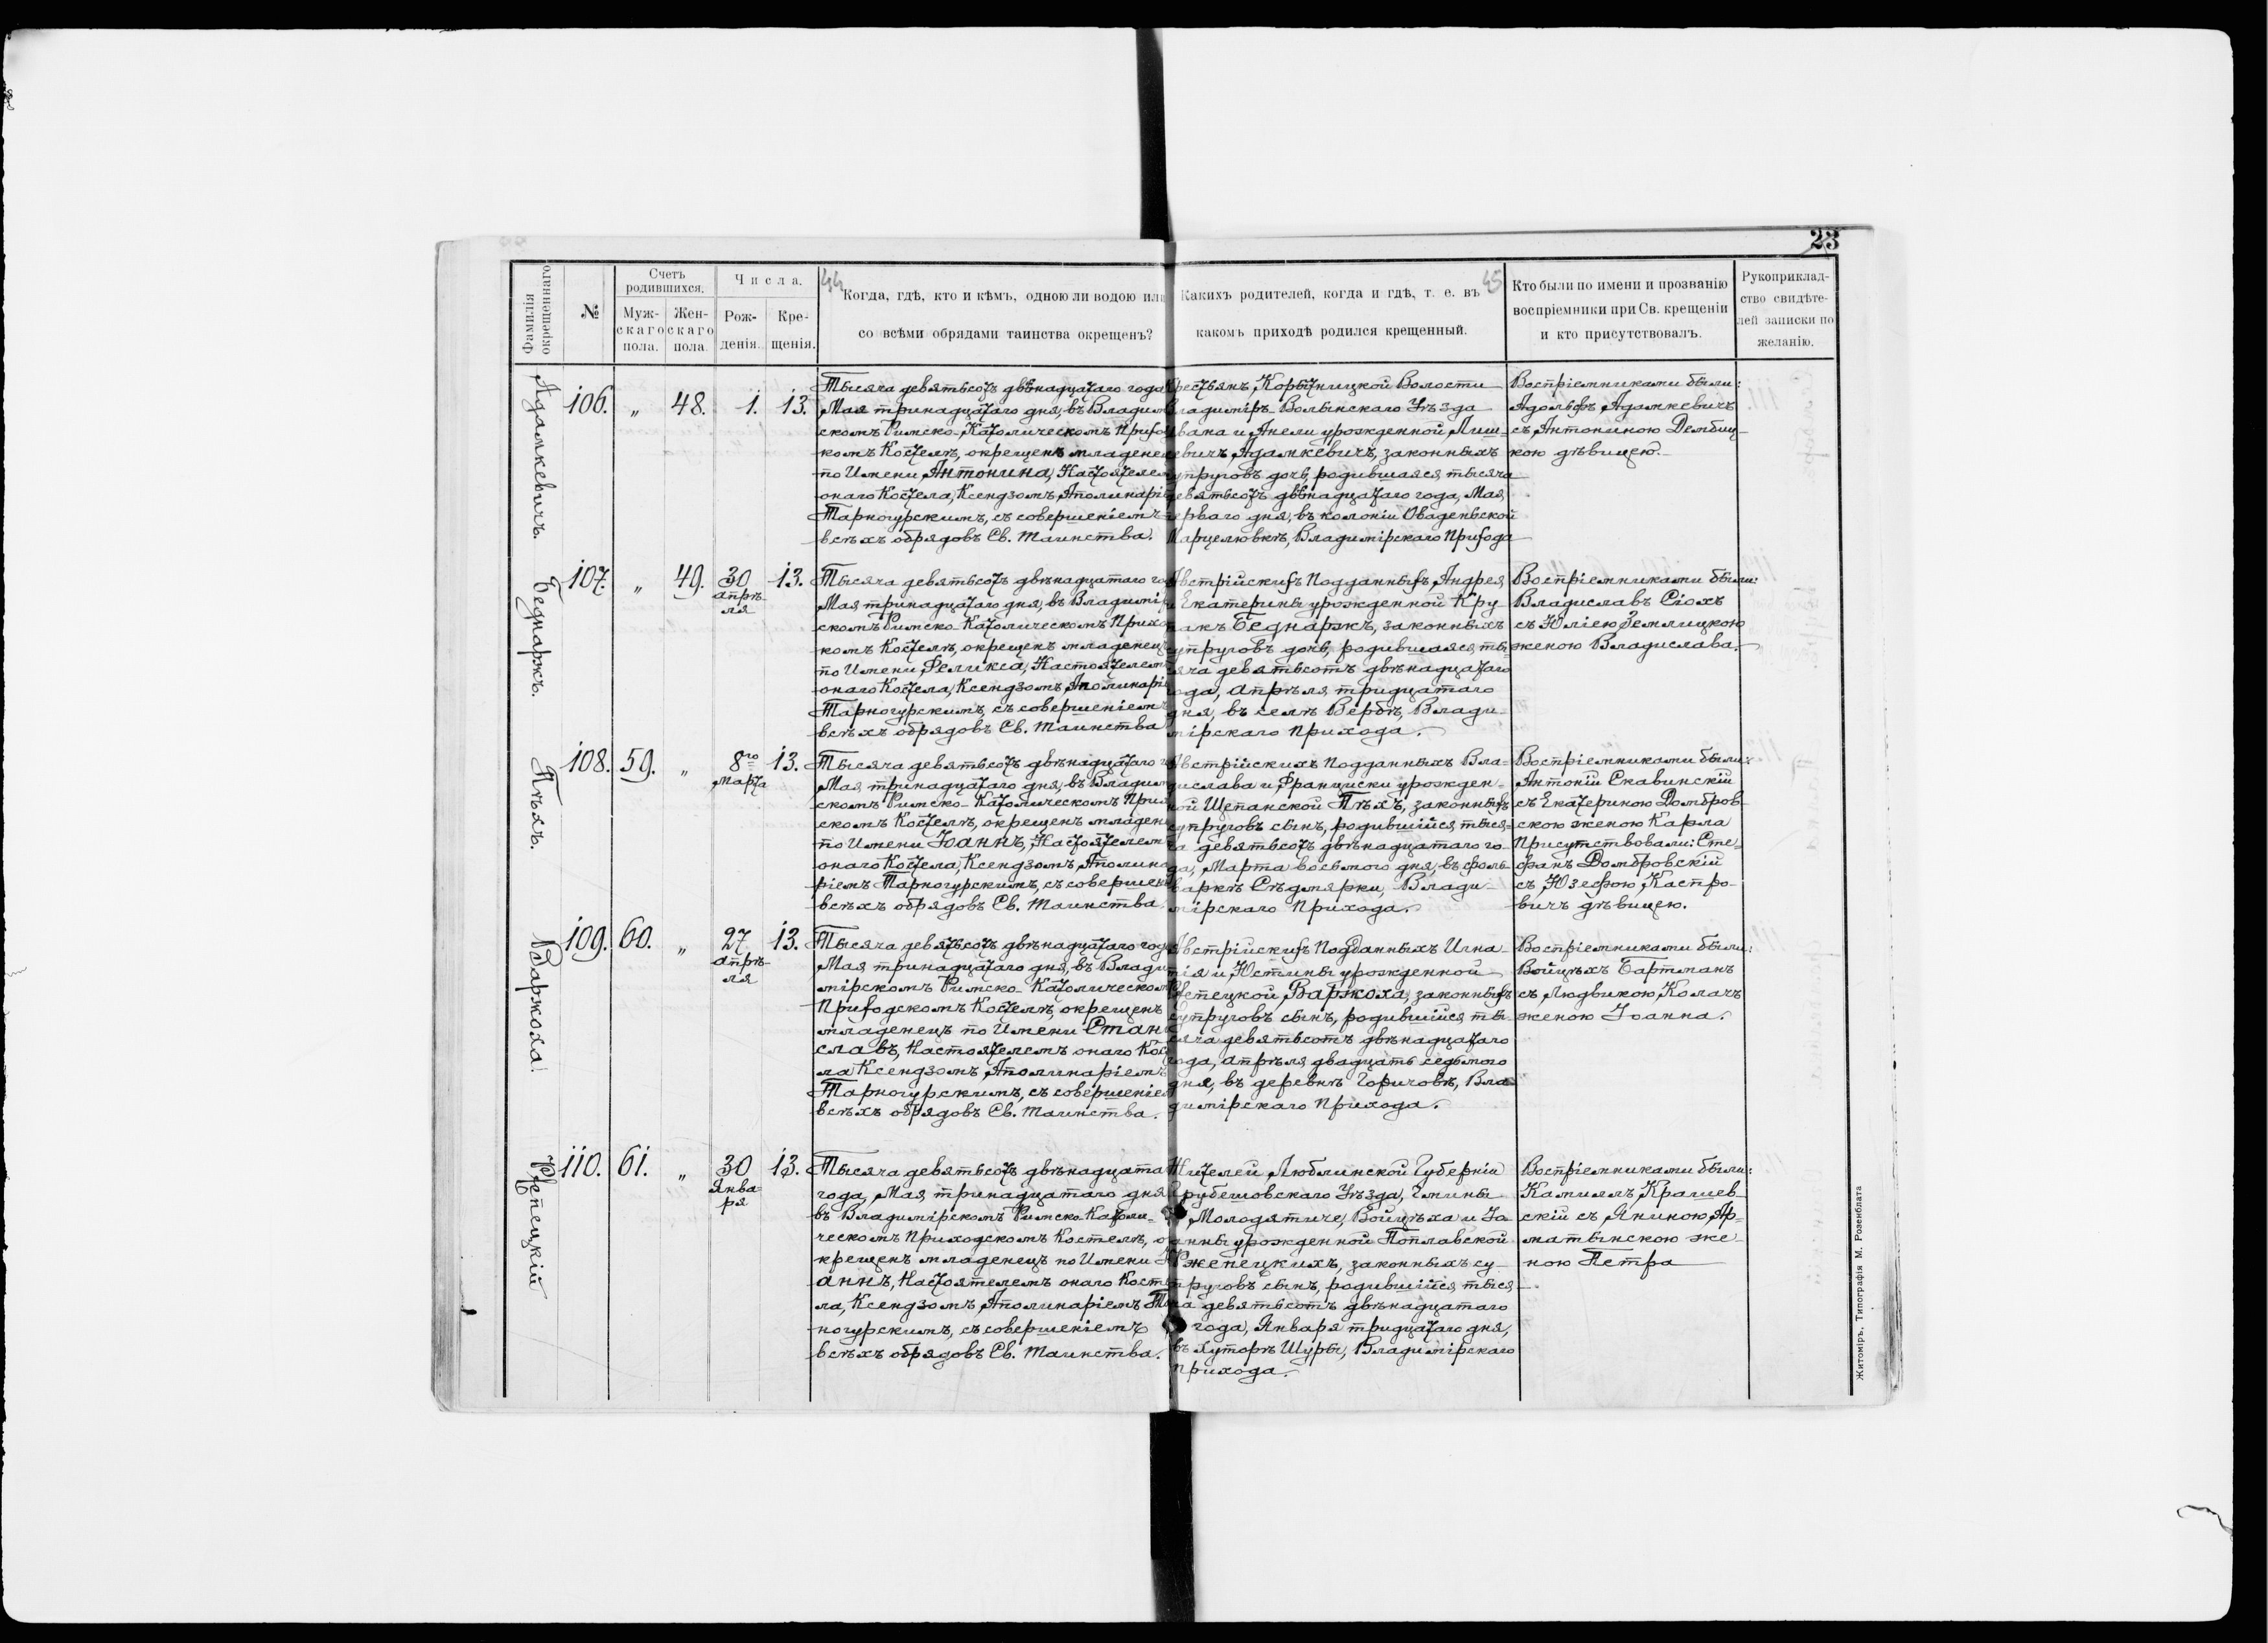 23
Фамилія окрещеннаго
№
Счетъ родившихся.
Мужскаго пола.
Женскаго пола.
Числа.
Рожденія.
Крещенія.
44
Когда, гдѣ, кто и кѣмъ, одною ли водою или
со всѣми обрядами таинства окрещенъ?
Какихъ родителей, когда и гдѣ, т. е. въ
45
какомъ приходѣ родился крещенный.
Кто были по имени и прозванію
воспріемники при Св. крещеніи
и кто присутствовалъ.
Рукоприклад-
ство свидѣте-
лей записки по
желанію.
Адамкевичъ.
106. „ 48. 1. 13.
Тысяча девятьсотъ двѣнадцатаго года
Мая тринадцатаго дня, въ Владимі
скомъ Римско-Католическомъ Прихо
комъ Костелѣ, окрещенъ младене
по Имени Антонина, Настоятелем
онаго Костела, Ксендзомъ Аполинарі
Тарногурскимъ, съ совершеніемъ
всѣхъ обрядовъ Св. Таинства.
рестьянъ, Корытницкой Волости
Владиміръ-Волынскаго Уѣзда
вана и Анели урожденной Лиш-
евичъ, Адамкевичъ, законныхъ
упруговъ дочь, родившаяся тысяча
евятьсотъ двѣнадцатаго года, Мая
ерваго дня, въ колоніи Оваденьской
Марцелювкѣ, Владимірскаго Прихода
Воспріемниками были:
Адольфъ Адамкевичъ
съ Антониною Дембиц-
кою дѣвицею.
Беднаржъ.
107. „ 49. 30 апрѣ-
ля 13.
Тысяча девятьсотъ двѣнадцатаго го
Мая тринадцатаго дня, въ Владимір
скомъ Римско-Католическомъ Прихо
комъ Костелѣ, окрещенъ младенец
по Имени Феликса, Настоятелем
онаго Костела, Ксендзомъ Аполинарі
Тарногурскимъ, съ совершеніем
всѣхъ обрядовъ Св. Таинства
Австрійскихъ Подданныхъ Андрея
и Екатерины урожденной Кру-
пакъ Беднаржъ, законныхъ
супруговъ дочь, родившаяся ты-
сяча девятьсотъ двѣнадцатаго
года, Апрѣля тридцатаго
дня, въ селѣ Вербѣ, Влади-
мірскаго Прихода.
Воспріемниками были:
Владиславъ Сіохъ
съ Юліею Землицкою
женою Владислава.
Пѣхъ.
108. 59. „ 8го
Марта 13.
Тысяча девятьсотъ двѣнадцатаго г
Мая тринадцатаго дня, въ Владим
скомъ Римско-Католическомъ Прих
скомъ Костелѣ, окрещенъ младен
по Имени Іоаннъ, Настоятелем
онаго Костела, Ксендзомъ Аполина
ріемъ Тарногурскимъ, съ соверше
всѣхъ обрядовъ Св. Таинства
Австрійскихъ Подданныхъ Вла-
дислава и Франциски урожден-
ной Щепанской Пѣхъ, законныхъ
супруговъ сынъ, родившійся тыся-
ча девятьсотъ двѣнадцатаго го-
да, Марта восьмого дня, въ фоль-
варкѣ Сѣдмярки, Влади-
мірскаго Прихода.
Воспріемниками были:
Антоній Скавинскій
съ Екатериною Домбров-
скою женою Карла
Присутствовали: Сте-
фанъ Домбровскій
съ Юзефою Кастро-
вичъ дѣвицею.
Варжоха.
109. 60. „ 27
апрѣ-
ля 13.
Тысяча девятьсотъ двѣнадцатаго год
Мая тринадцатаго дня, въ Влади
мірскомъ Римско-Католическом
Приходскомъ Костелѣ, окрещенъ
младенецъ по Имени Стани
славъ, Настоятелемъ онаго Кос
ла Ксендзомъ Аполинаріемъ
Тарногурскимъ, съ совершеніе
всѣхъ обрядовъ Св. Таинства.
Австрійскихъ Подданныхъ Игна-
тія и Юстины урожденной
Варжоха, законныхъ
супруговъ сынъ, родившійся ты-
сяча девятьсотъ двѣнадцатаго
года, апрѣля двадцать седьмого
дня, въ деревнѣ Горичовѣ, Вла-
димірскаго Прихода.
Воспріемниками были:
Войцѣхъ Бартманъ
съ Людвикою Колачъ
женою Іоанна.
Ржепецкій
110. 61. „ 30
Янва-
ря 13.
Тысяча девятьсотъ двѣнадцата
года, Мая тринадцатаго дня
въ Владимірскомъ Римско-Католи-
ческомъ Приходскомъ Костелѣ, о
крещенъ младенецъ по Имени І
аннъ, Настоятелемъ онаго Косте
ла, Ксендзомъ Аполинаріемъ Та
ногурскимъ, съ совершеніемъ
всѣхъ обрядовъ Св. Таинства.
Жителей Люблинской Губерніи
Грубешовскаго Уѣзда, Гмины
Молодятиче, Войцѣха и Іо
анны урожденной Поплавской
Ржепецкихъ, законныхъ су-
пруговъ сынъ, родившійся тыся
ча девятьсотъ двѣнадцатаго
года, Января тридцатаго дня,
въ хуторѣ Шуры, Владимірскаго
Прихода.
Воспріемниками были:
Камиллъ Крашев-
скій съ Яниною Яр-
матынскою же-
ною Петра
Житоміръ, Типографія М. Розенблата